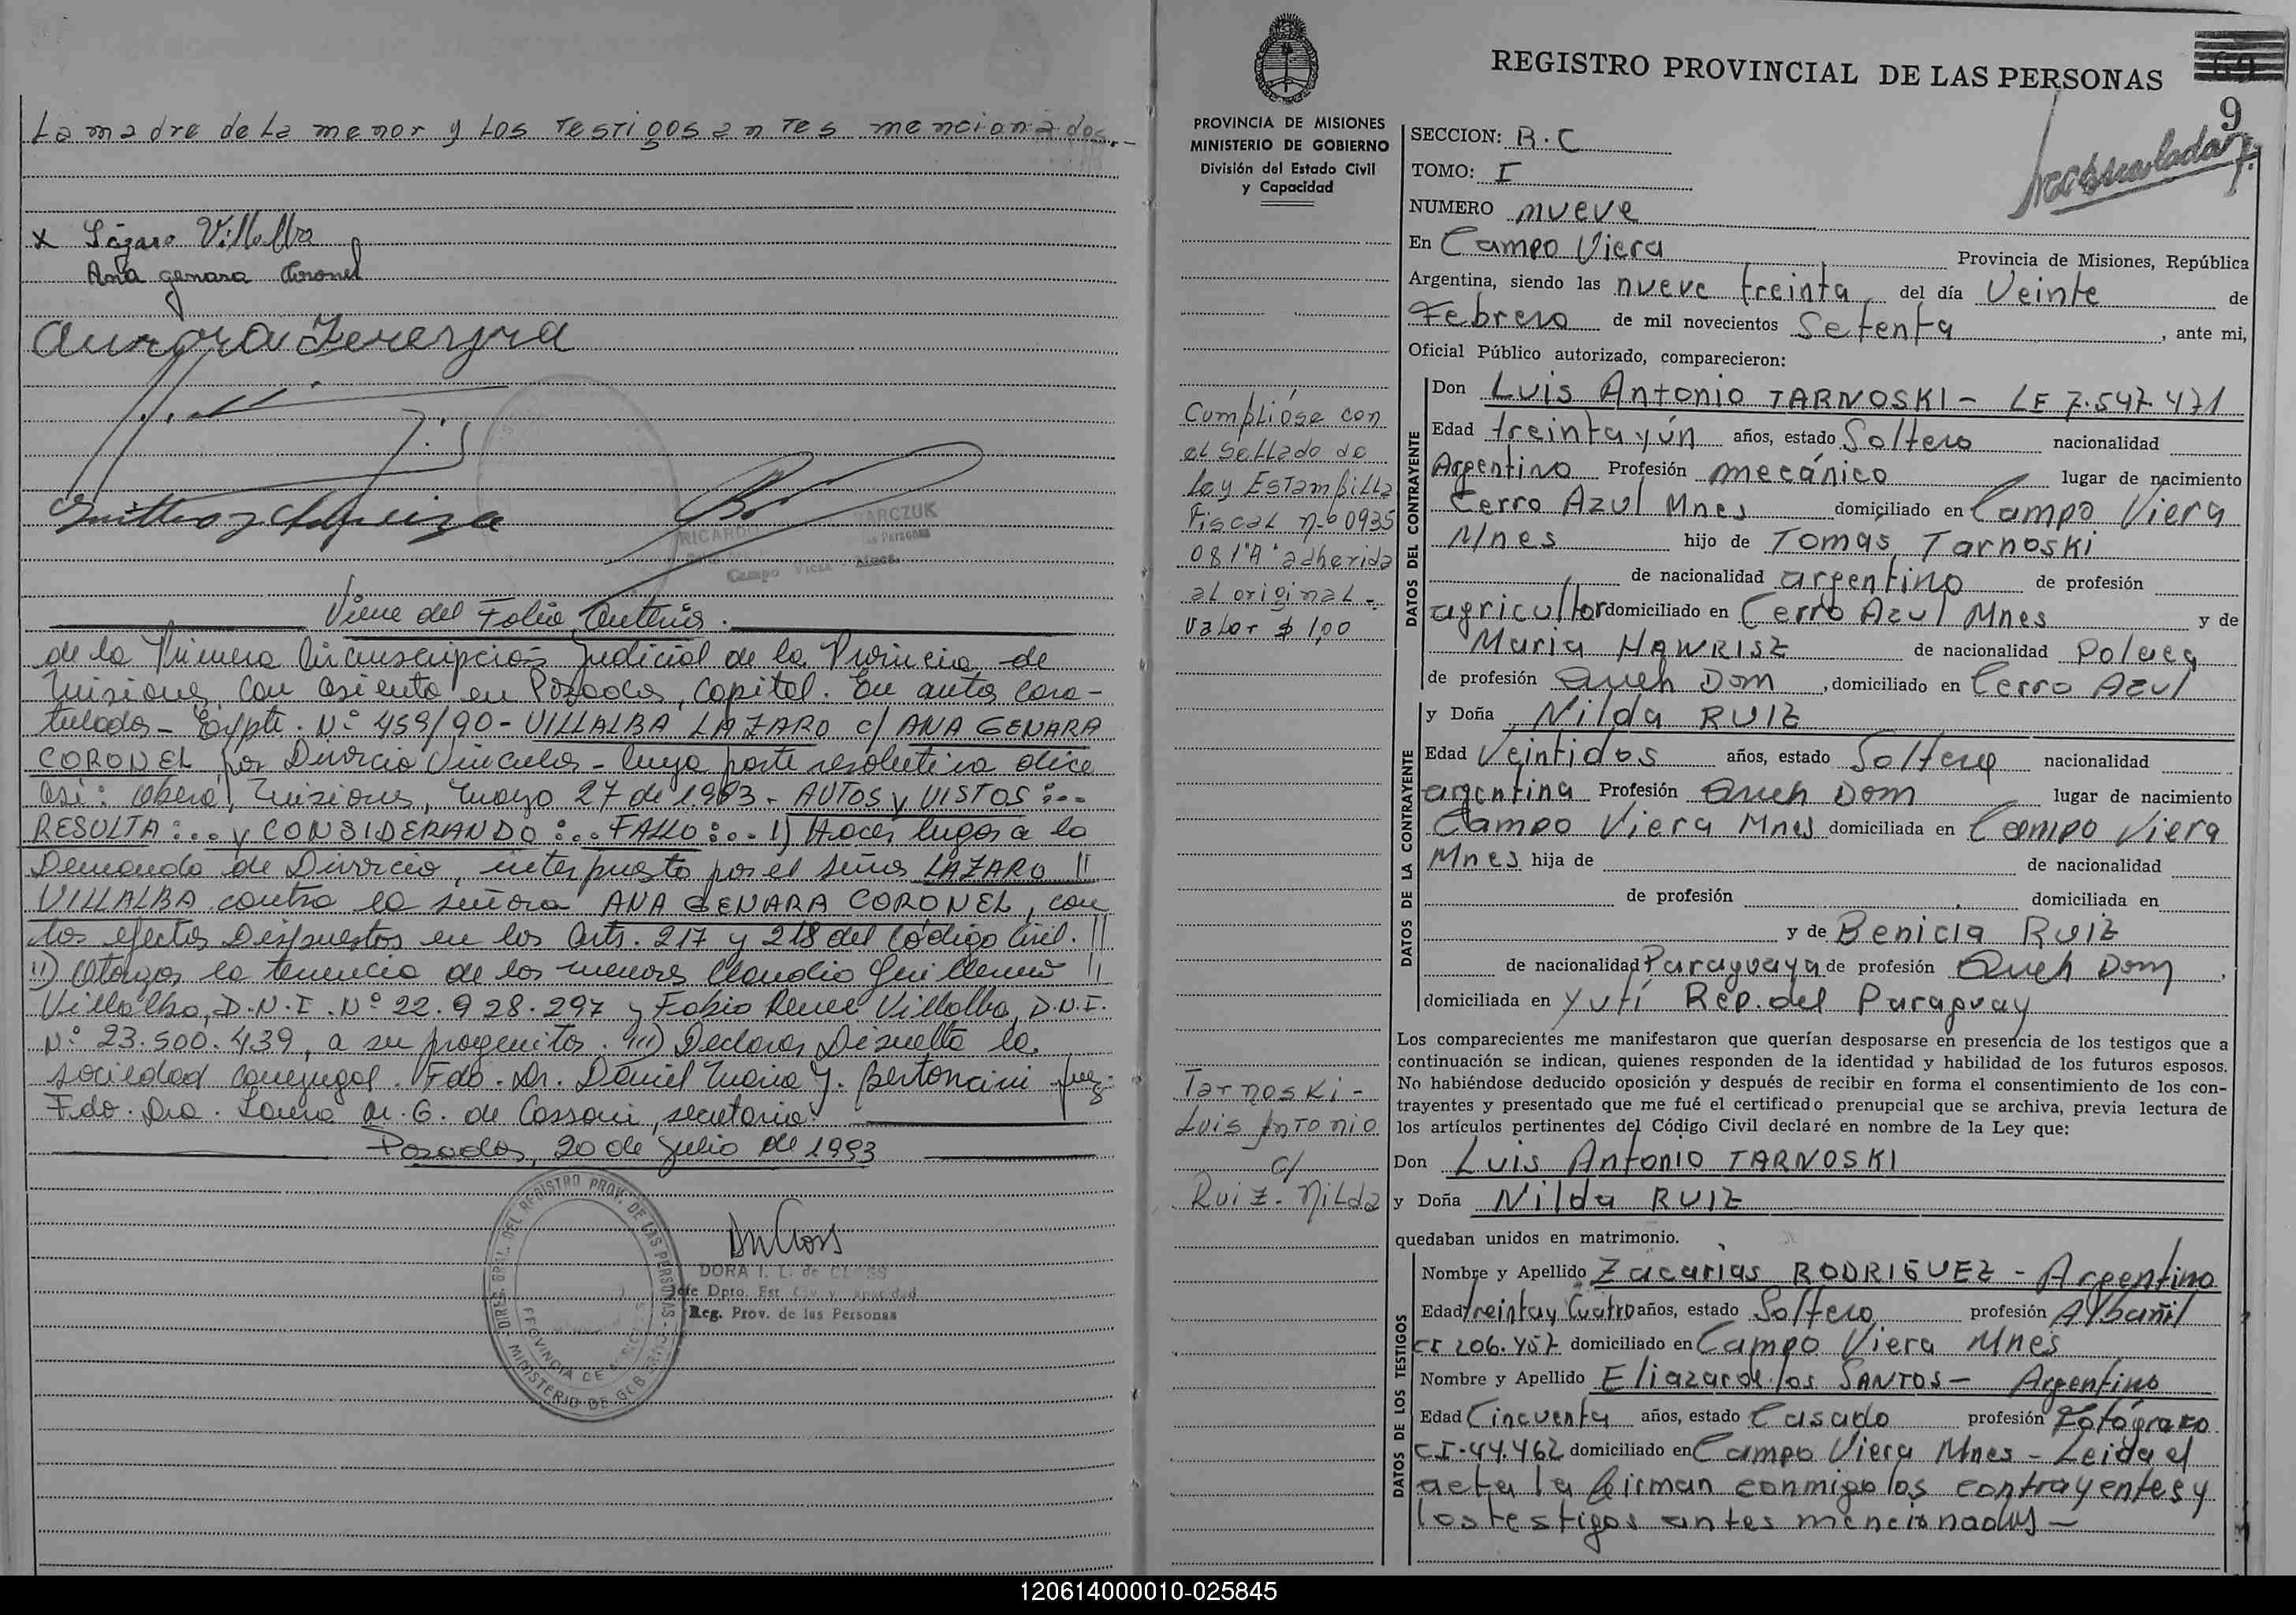 La madre de La menor y Los Testigos an Tes mencionados.-
x Lázaro Villalba
Ana genara Coronel
Aurora Ferreyra
RICARDO ARCZUK
Campo Viera Mnes.
Viene del Folio Anterior.
de la Primera Circunscripción Judicial de la Provincia de
Misiones, con asiento en Posadas, Capital. En autos cara-
tulados - Expte. Nº 459/90 - VILLALBA LAZARO c/ ANA GENARA
CORONEL por Divorcio Vincular - Cuya parte resolutiva dice
así: Oberá, Misiones, Mayo 27 de 1.993 - AUTOS y VISTOS:..
RESULTA:... y CONSIDERANDO:... FALLO:.. I) Hacer lugar a la
Demanda de Divorcio, interpuesta por el señor LAZARO //
VILLALBA contra la señora ANA GENARA CORONEL, con
los efectos Dispuestos en los Arts. 217 y 218 del Código Civil. //
II) Otorgar la tenencia de los menores Claudio Guillermo //
Villalba, D.N.I. Nº 22.928.297 y Fabio Renee Villalba, D.N.I.
Nº 23.500.439, a su progenitor. III) Declarar Disuelta la
sociedad conyugal. Fdo. Dr. Daniel Mario J. Bertoncini Juez.
Fdo. Dra. M. G. de Cassoni, secretaria.
Posadas, 20 de Julio de 1993
DIREC. GRAL. DEL REGISTRO PROV. DE LAS PERSONAS - MINISTERIO DE GOB
PROVINCIA DE MISIONES
DORA I. L. de CLOSS
Jefe Dpto. Est. Civ. y Capacidad
Reg. Prov. de las Personas
REGISTRO PROVINCIAL DE LAS PERSONAS
9
PROVINCIA DE MISIONES
MINISTERIO DE GOBIERNO
División del Estado Civil
y Capacidad
SECCION: R.C
TOMO: I
NUMERO nueve
En Campo Viera Provincia de Misiones, República
Argentina, siendo las nueve treinta del día Veinte de
Febrero de mil novecientos Setenta, ante mi,
Oficial Público autorizado, comparecieron:
Cumplióse con
el Sellado de
Ley Estampilla
Fiscal nº 0935
081"A" adherida
al original -
valor $ 1,00
DATOS DEL CONTRAYENTE
Don Luis Antonio TARNOSKI - LE 7.547.471
Edad treinta y ún años, estado Soltero nacionalidad
Argentino Profesión mecánico lugar de nacimiento
Cerro Azul Mnes domiciliado en Campo Viera
Mnes hijo de Tomas Tarnoski
de nacionalidad argentino de profesión
agricultor domiciliado en Cerro Azul Mnes y de
Maria HAWRISZ de nacionalidad Polaca
de profesión Queh Dom, domiciliado en Cerro Azul
DATOS DE LA CONTRAYENTE
y Doña Nilda RUIZ
Edad Veintidos años, estado Soltera nacionalidad
argentina Profesión Queh Dom lugar de nacimiento
Campo Viera Mnes domiciliada en Campo Viera
Mnes hija de de nacionalidad
de profesión domiciliada en
y de Benicia RUIZ
de nacionalidad Paraguaya de profesión Queh Dom,
domiciliada en Yutí Rep. del Paraguay
Los comparecientes me manifestaron que querían desposarse en presencia de los testigos que a
continuación se indican, quienes responden de la identidad y habilidad de los futuros esposos.
No habiéndose deducido oposición y después de recibir en forma el consentimiento de los con-
trayentes y presentado que me fué el certificado prenupcial que se archiva, previa lectura de
los artículos pertinentes del Código Civil declaré en nombre de la Ley que:
Tarnoski -
Luis Antonio
c/
Ruiz - Nilda
Don Luis Antonio TARNOSKI
y Doña Nilda RUIZ
quedaban unidos en matrimonio.
DATOS DE LOS TESTIGOS
Nombre y Apellido Zacarias RODRIGUEZ - Argentino
Edad treinta y Cuatro años, estado Soltero profesión Albañil
CI 206.457 domiciliado en Campo Viera Mnes
Nombre y Apellido Eliazar de los SANTOS - Argentino
Edad Cincuenta años, estado Casado profesión Fotógrafo
C.I. 44.462 domiciliado en Campo Viera Mnes - Leida el
acta la firman conmigo los contrayentes y
los testigos antes mencionados -
120614000010-025845